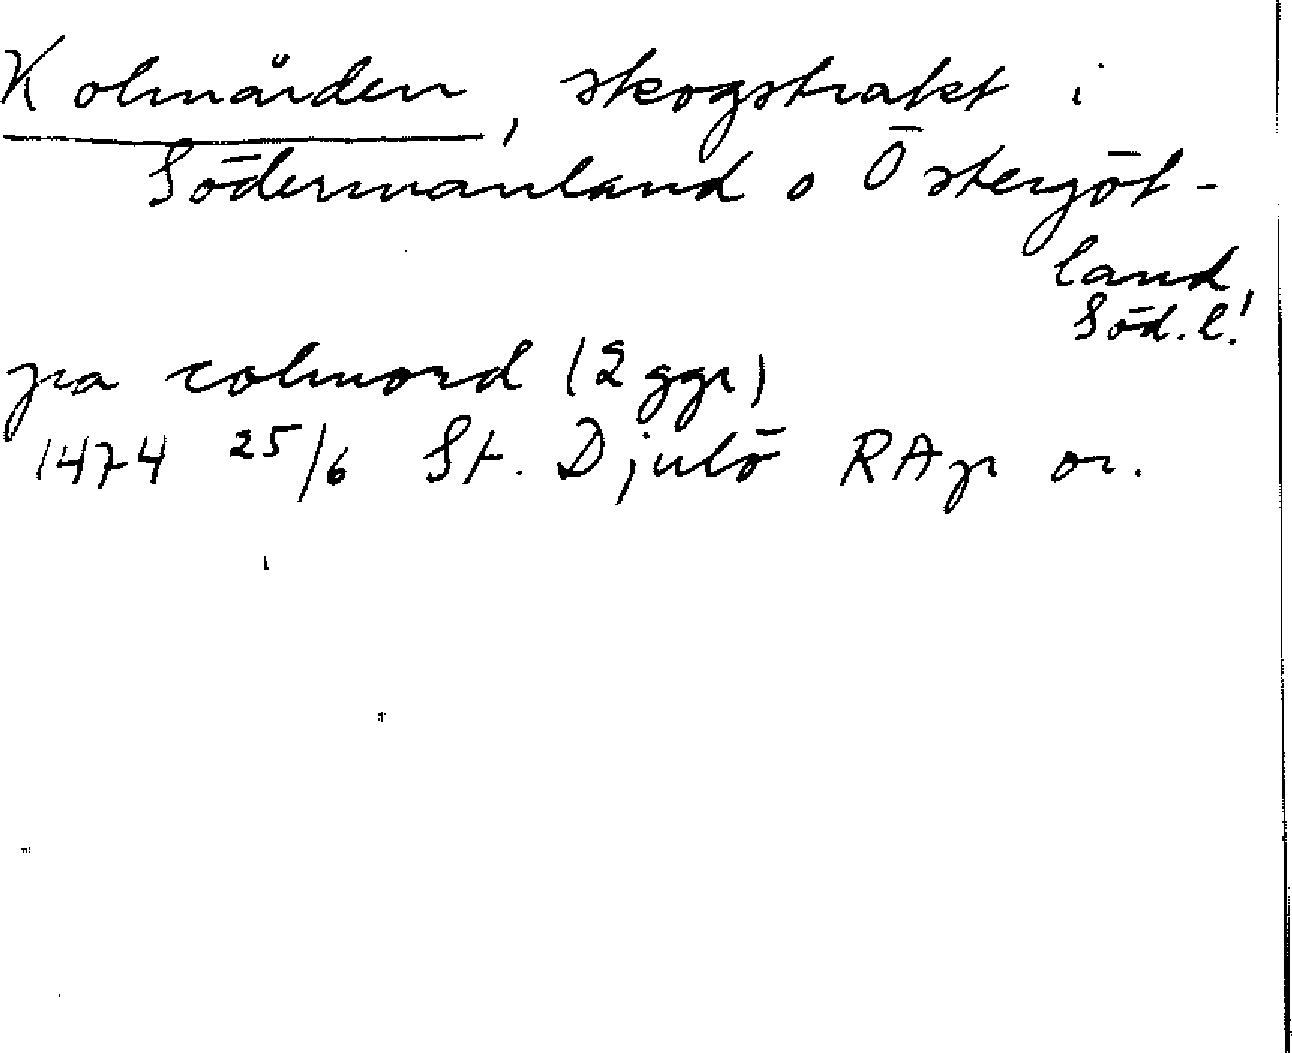 Kolmården, skogstrakt i
Södermanland o Östergöt-
land
Söd. l!
pa colmord (2 ggr)
1474 25/6 St. Djulö RAp or.